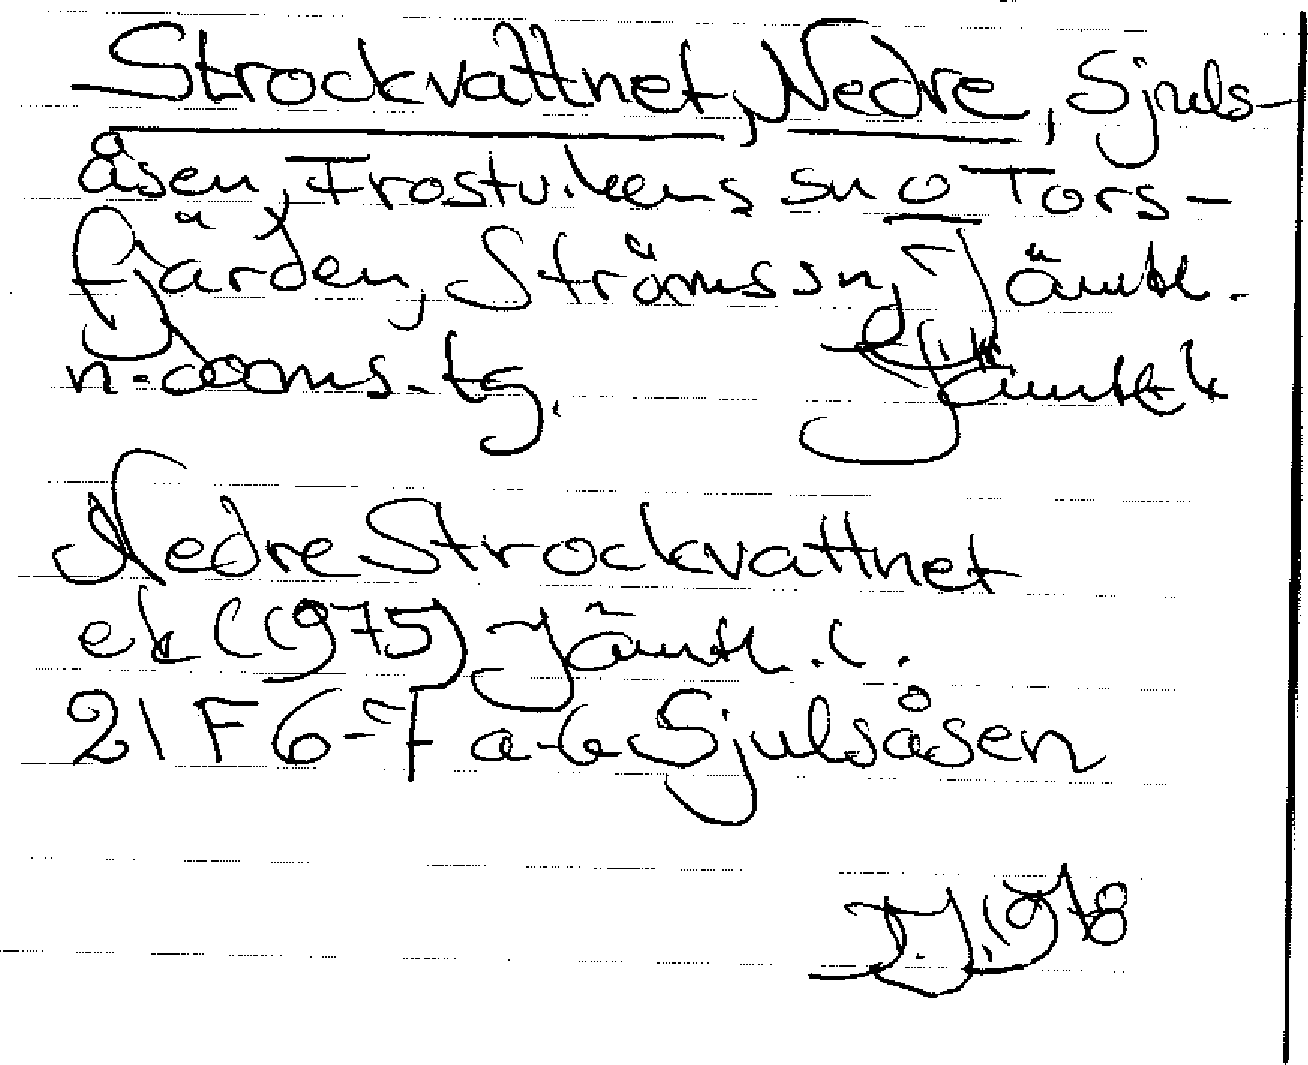 Strockvattnet, Nedre, Sjuls-
åsen, Frostvikens sn o Tors-
fjärden, Ströms sn, Jämtl.
n. dooms. tg. Jämtl
Nedre Strockvattnet
ek (1975) Jämtl. l.
21 F 6-7 a-b Sjulsåsen
1978